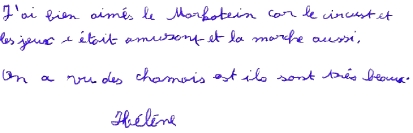 J'ai bien aimés le Markstein car le circust et
les jeux c était amusant et la marche aussi.
On a vu des chamois est ils sont très beaux.
Hélène